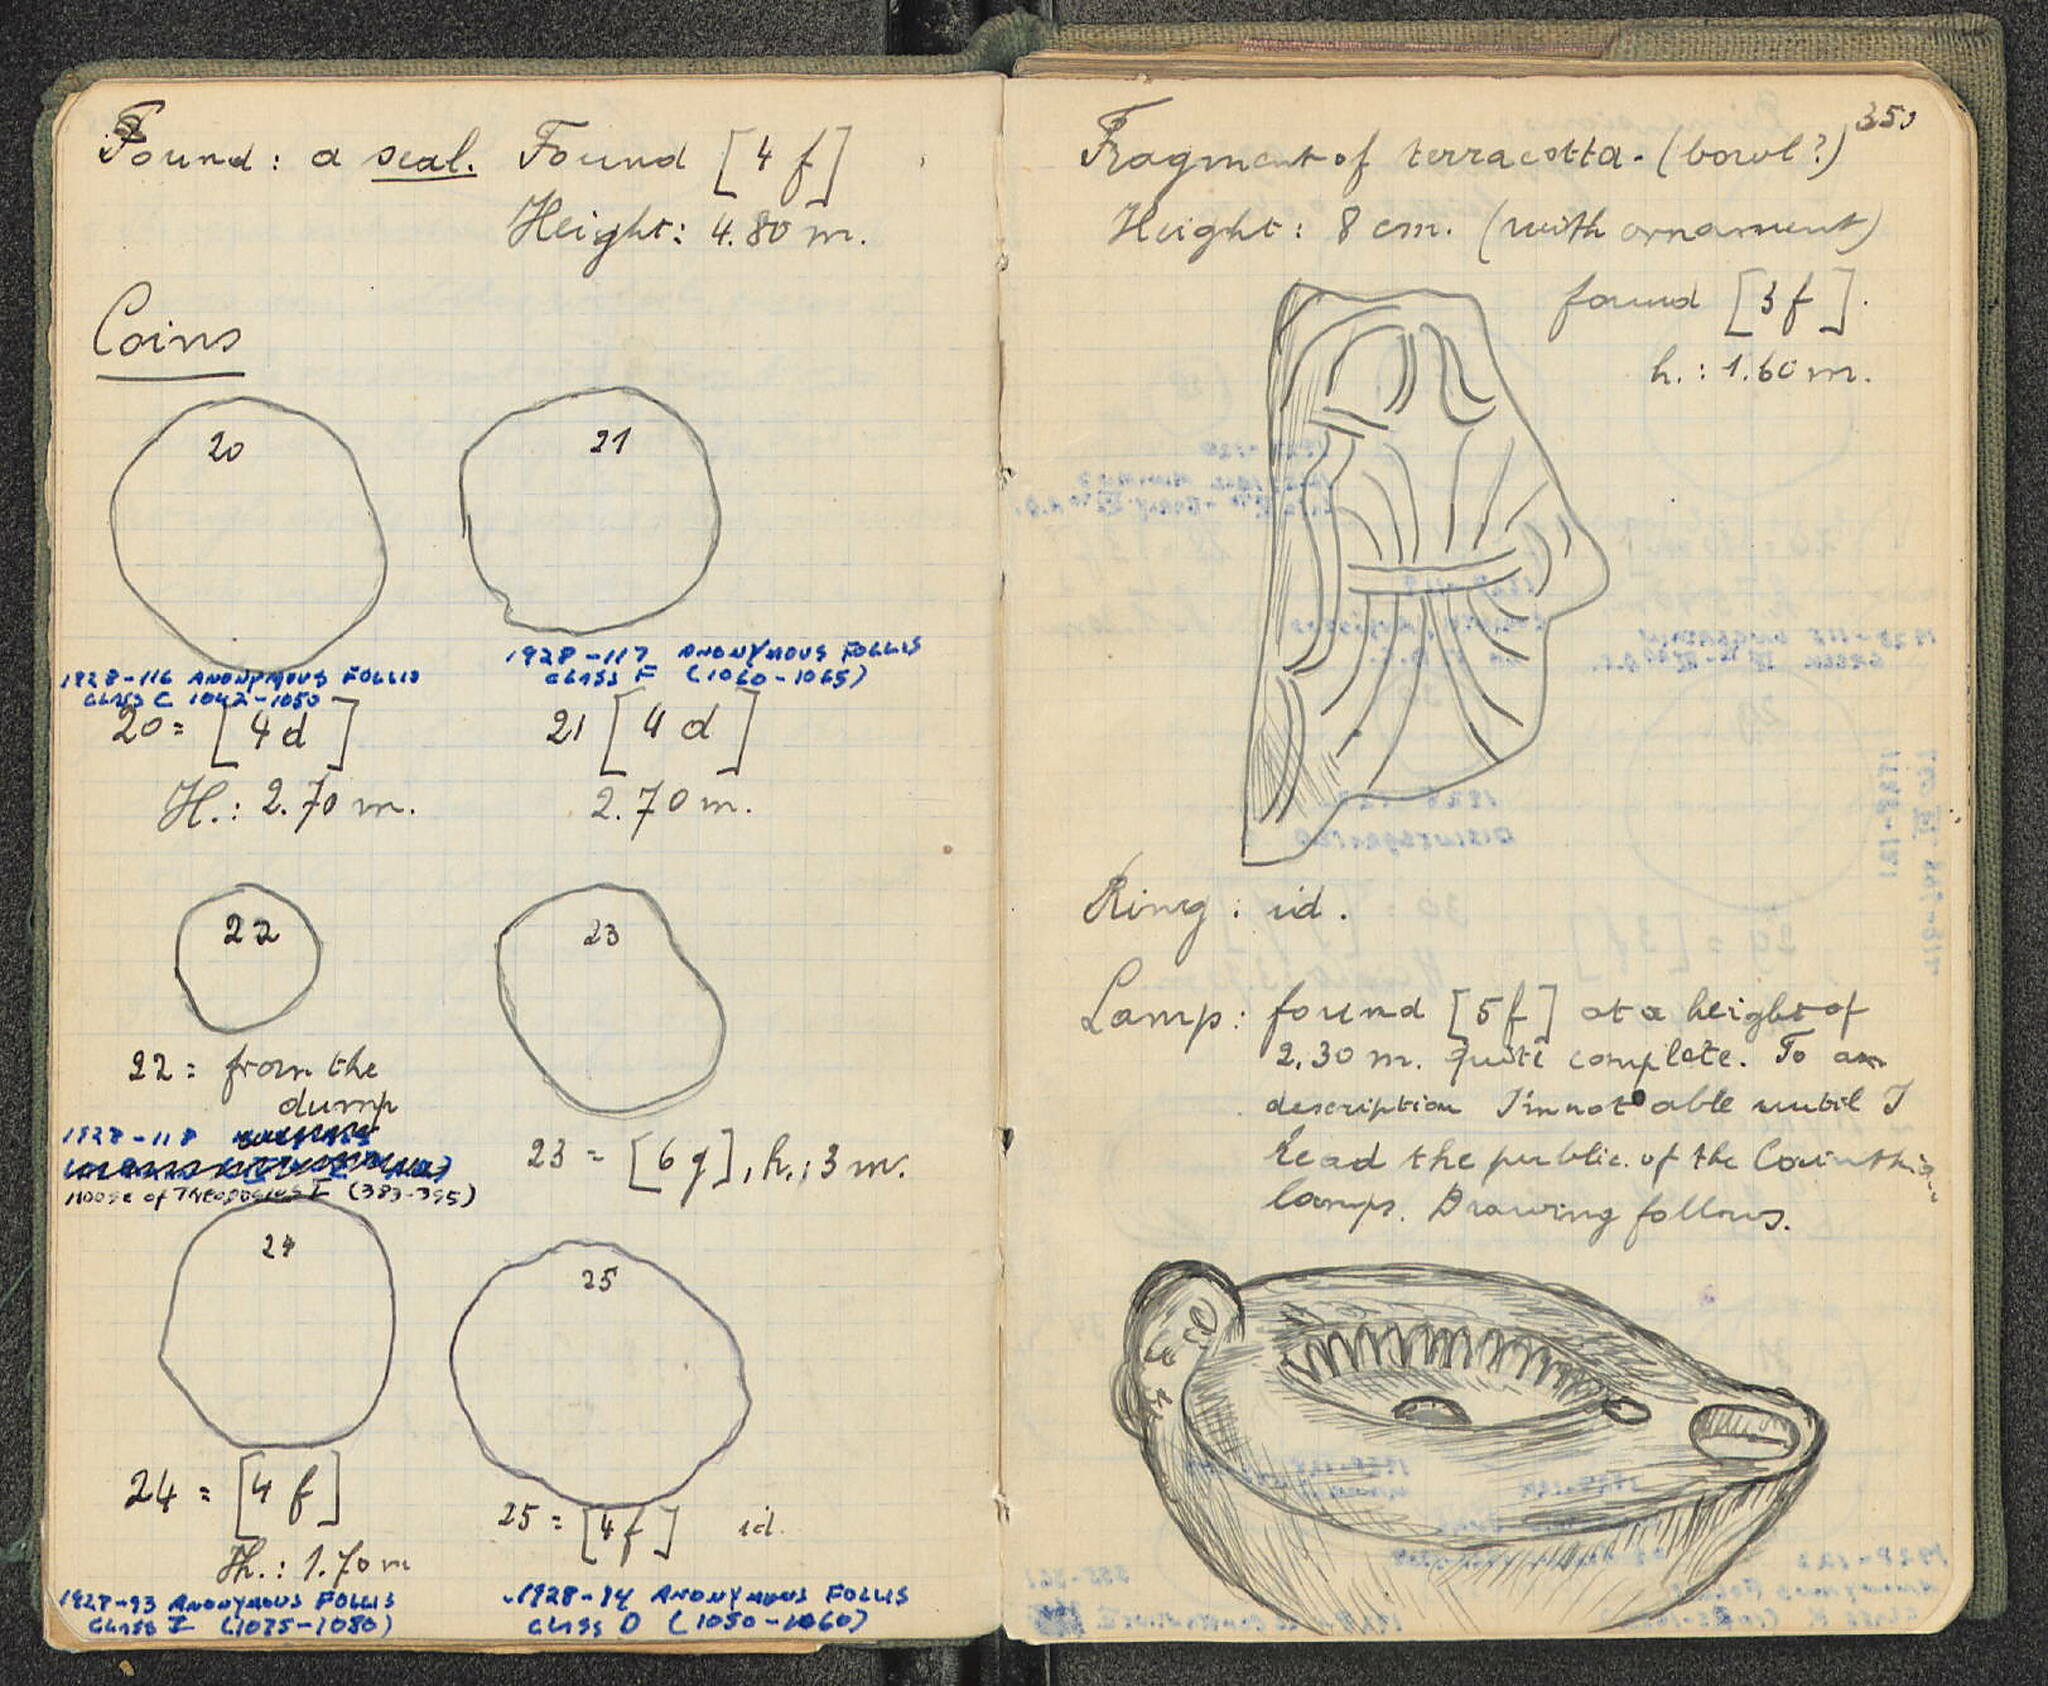 Found: a seal. Found [4 f]
Height: 4.80 m.
Coins
20
21
1928-116 ANONYMOUS FOLLIS
CLASS C 1042-1050
1928-117 ANONYMOUS FOLLIS
CLASS F (1060-1065)
20 = [4 d]
H.: 2.70 m.
21 [4 d]
2.70 m.
22
23
22 = from the
dump
1928-118
House of Theodosius I (383-395)
23 = [6 g], h.: 3 m.
24
25
24 = [4 f]
H.: 1.70 m
25 = [4 f] id.
1928-93 ANONYMOUS FOLLIS
CLASS I (1075-1080)
1928-94 ANONYMOUS FOLLIS
CLASS D (1050-1060)
350
Fragment of terracotta. (bowl?)
Height: 8 cm. (with ornament)
found [3 f].
h.: 1.60 m.
Ring: id.
Lamp: found [5 f] at a height of
2.30 m. quite complete. To am
description I'm not able until I
Read the public. of the
lamps. Drawing follows.